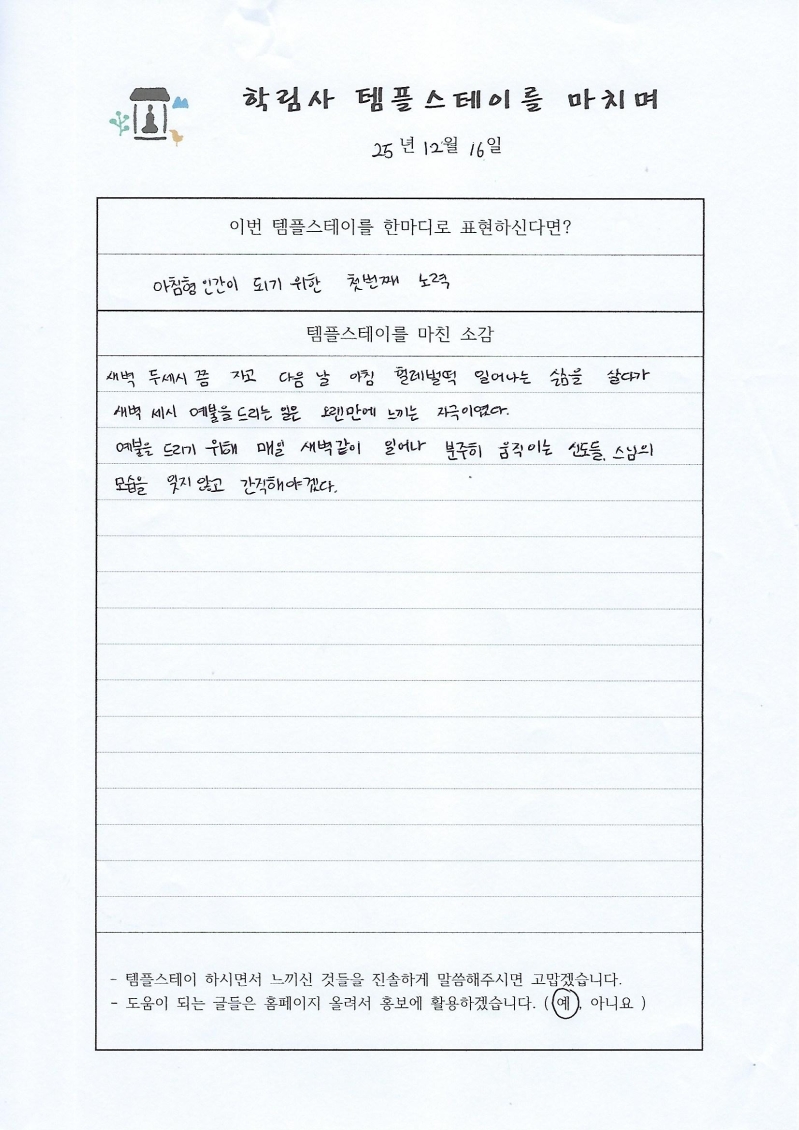 학림사 템플스테이를 마치며
25년 12월 16일
이번 템플스테이를 한마디로 표현하신다면?
아침형 인간이 되기 위한 첫번째 노력
템플스테이를 마친 소감
새벽 두세시 쯤 자고 다음 날 아침 헐레벌떡 일어나는 삶을 살다가
새벽 세시 예불을 드리는 일은 오랜만에 느끼는 자극이었다.
예불을 드리기 위해 매일 새벽같이 일어나 분주히 움직이는 신도들, 스님의
모습을 잊지 않고 간직해야겠다.
- 템플스테이 하시면서 느끼신 것들을 진솔하게 말씀해주시면 고맙겠습니다.
- 도움이 되는 글들은 홈페이지 올려서 홍보에 활용하겠습니다. ( 예, 아니요 )